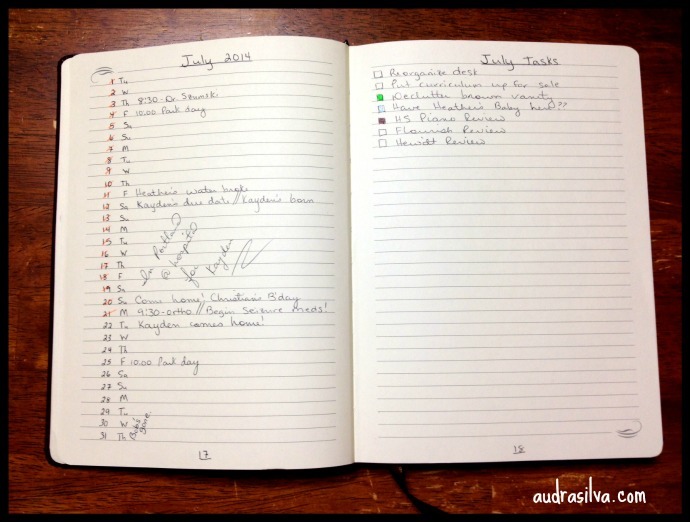 July 2014
1 Tu
2 W
3 Th 8:30 - Dr. Szumski
4 F 10:00 Park day
5 Sa
6 Su
7 M
8 Tu
9 W
10 Th
11 F Heather's water broke
12 Sa Kayden's due date // Kayden's born
13 Su
14 M
15 Tu
16 W
17 Th
18 F
19 Sa
In Portland
@ hospital
for
Kayden
20 Su Come home! Christian's B'day
21 M 9:30-ortho // Begin seizure meds!
22 Tu Kayden comes home!
23 W
24 Th
25 F 10:00 Park day
26 Sa
27 Su
28 M
29 Tu
30 W
31 Th
17
July Tasks
Reorganize desk
Put curriculum up for sale
Declutter brown vanity
Have Heather's Baby here??
HS Piano Review
Flourish Review
Hewitt Review
18
audrasilva.com